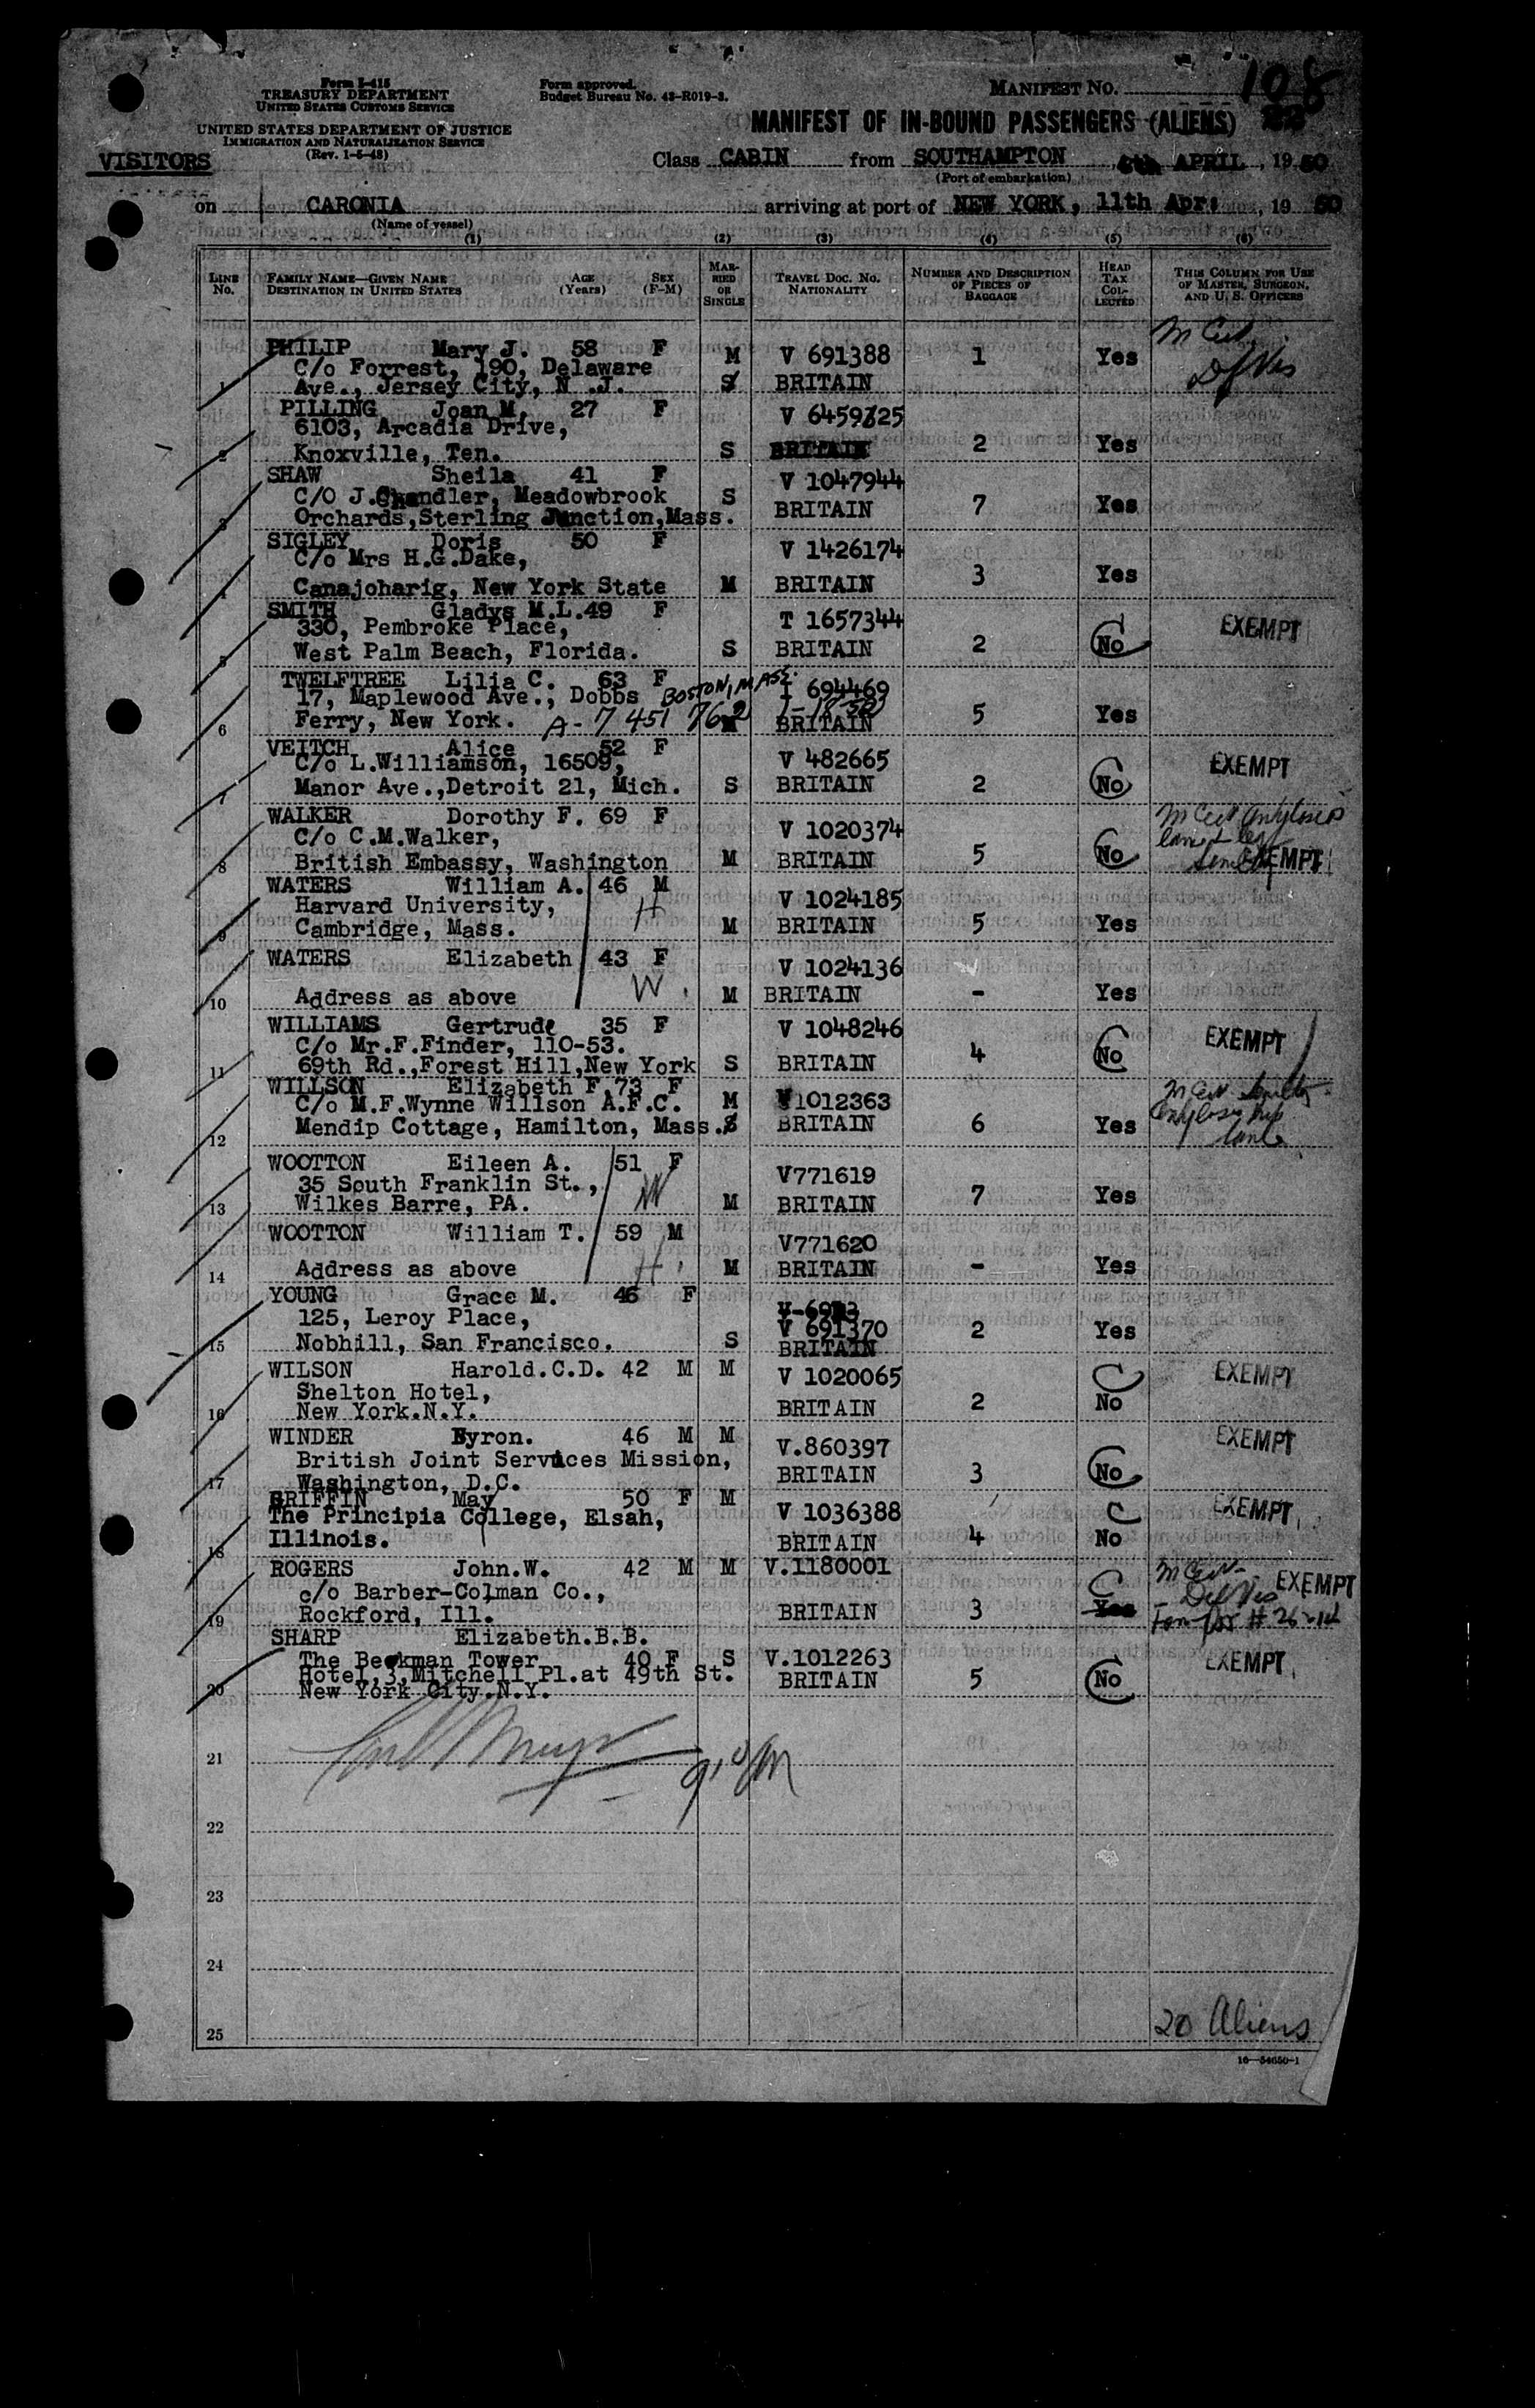 Form I-415
TREASURY DEPARTMENT
UNITED STATES CUSTOMS SERVICE
UNITED STATES DEPARTMENT OF JUSTICE
IMMIGRATION AND NATURALIZATION SERVICE
(Rev. 1-5-48)
Form approved.
Budget Bureau No. 43-R019-3.
MANIFEST NO. 108
MANIFEST OF IN-BOUND PASSENGERS (ALIENS)
VISITORS
Class CABIN from SOUTHAMPTON, 6th APRIL, 1950
(Port of embarkation)
on CARONIA arriving at port of NEW YORK, 11th Apr:, 1950
(Name of vessel)
(1) (2) (3) (4) (5) (6)
LINE No. FAMILY NAME—GIVEN NAME DESTINATION IN UNITED STATES AGE (Years) SEX (F-M) MARRIED OR SINGLE TRAVEL DOC. NO. NATIONALITY NUMBER AND DESCRIPTION OF PIECES OF BAGGAGE HEAD TAX COLLECTED THIS COLUMN FOR USE OF MASTER, SURGEON, AND U. S. OFFICERS
PHILIP Mary J. 58 F M V 691388 1 Yes M Cert.
C/o Forrest, 190, Delaware
1 Ave., Jersey City, N .J. S BRITAIN Df Vis
PILLING Joan M. 27 F V 6459325
6103, Arcadia Drive,
2 Knoxville, Ten. S BRITAIN 2 Yes
SHAW Sheila 41 F V 1047944
C/O J.Chandler, Meadowbrook S
3 Orchards,Sterling Junction,Mass. BRITAIN 7 Yes
SIGLEY Doris 50 F V 1426174
C/o Mrs H.G.Dake,
4 Canajoharig, New York State M BRITAIN 3 Yes
SMITH Gladys M.L.49 F T 1657344 EXEMPT
330, Pembroke Place,
5 West Palm Beach, Florida. S BRITAIN 2 No
TWELFTREE Lilia C. 63 F BOSTON, MASS. I 694469
17, Maplewood Ave., Dobbs
6 Ferry, New York. A-7 451 762 M BRITAIN 5 Yes
VEITCH Alice 52 F V 482665 EXEMPT
C/o L.Williamson, 16509,
7 Manor Ave.,Detroit 21, Mich. S BRITAIN 2 No
WALKER Dorothy F. 69 F V 1020374 M Cert
C/o C.M.Walker,
8 British Embassy, Washington M BRITAIN 5 No EXEMPT
WATERS William A. 46 M V 1024185
Harvard University, H
9 Cambridge, Mass. M BRITAIN 5 Yes
WATERS Elizabeth 43 F V 1024136
W.
10 Address as above M BRITAIN - Yes
WILLIAMS Gertrude 35 F V 1048246 EXEMPT
C/o Mr.F.Finder, 110-53. 4 No
11 69th Rd.,Forest Hill,New York S BRITAIN
WILLSON Elizabeth F.73 F M Cert
C/o M.F.Wynne Willson A.F.C. M V1012363
12 Mendip Cottage, Hamilton, Mass. S BRITAIN 6 Yes
WOOTTON Eileen A. 51 F V771619
35 South Franklin St., W
13 Wilkes Barre, PA. M BRITAIN 7 Yes
WOOTTON William T. 59 M V771620
H.
14 Address as above M BRITAIN - Yes
YOUNG Grace M. 46 F
125, Leroy Place, V 691370 2 Yes
15 Nobhill, San Francisco. S BRITAIN
WILSON Harold.C.D. 42 M M V 1020065 C EXEMPT
Shelton Hotel,
16 New York.N.Y. BRITAIN 2 No
WINDER Byron. 46 M M V.860397 EXEMPT
British Joint Services Mission,
17 Washington, D.C. BRITAIN 3 No
GRIFFIN May 50 F M V 1036388 C EXEMPT
The Principia College, Elsah,
18 Illinois. BRITAIN 4 No
ROGERS John.W. 42 M M V.1180001 M Cert
c/o Barber-Colman Co., C Def Vis EXEMPT
19 Rockford, Ill. BRITAIN 3 Yes
SHARP Elizabeth.B.B.
The Beekman Tower 40 F S V.1012263 EXEMPT
Hotel,3,Mitchell Pl.at 49th St. BRITAIN 5 No
20 New York City.N.Y.
21
22
23
24
25 20 Aliens
16—54650-1